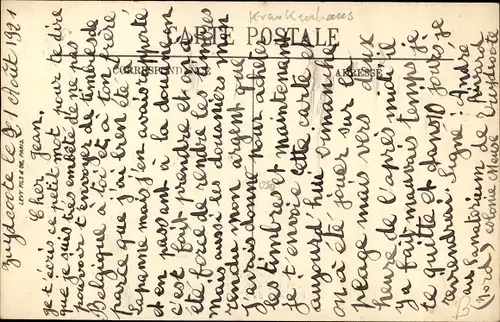 Krankenhaus
CARTE POSTALE
CORRESPONDANCE
ADRESSE
LEVY FILS & CIE, PARIS
Zuydcoote le 21 Août 1921
Cher Jean,
je t'écris ce petit mot pour te dire
que je suis très embêté de ne pas
pouvoir t'envoyer de timbres de
Belgique à toi et à ton frère
parce que j'ai bien été à
La panne mais j'en avais apporté
et en passant à la douane on
c'est fait prendre et on a
été forcé de rendre les timbres
mais aussi les douaniers m'on
rendu mon argent que
j'avais donné pour acheter
les timbres et maintenant
je t'envoie cette carte et
aujourd'hui dimanche
on a été jouer sur la
plage mais vers deux
heure de l'après midi il
y a fait mauvais temps je
te quitte et dans 10 jours je
reviendrai. Signé: André
Sanatorium de Zuydcoote
(Nord)